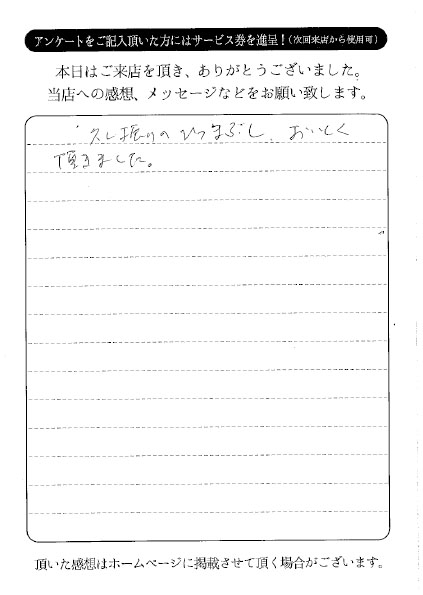 アンケートをご記入頂いた方にはサービス券を進呈！（次回来店から使用可）
本日はご来店を頂き、ありがとうございました。
当店への感想、メッセージなどをお願い致します。
久し振りのひつまぶし、おいしく
頂きました。
頂いた感想はホームページに掲載させて頂く場合がございます。